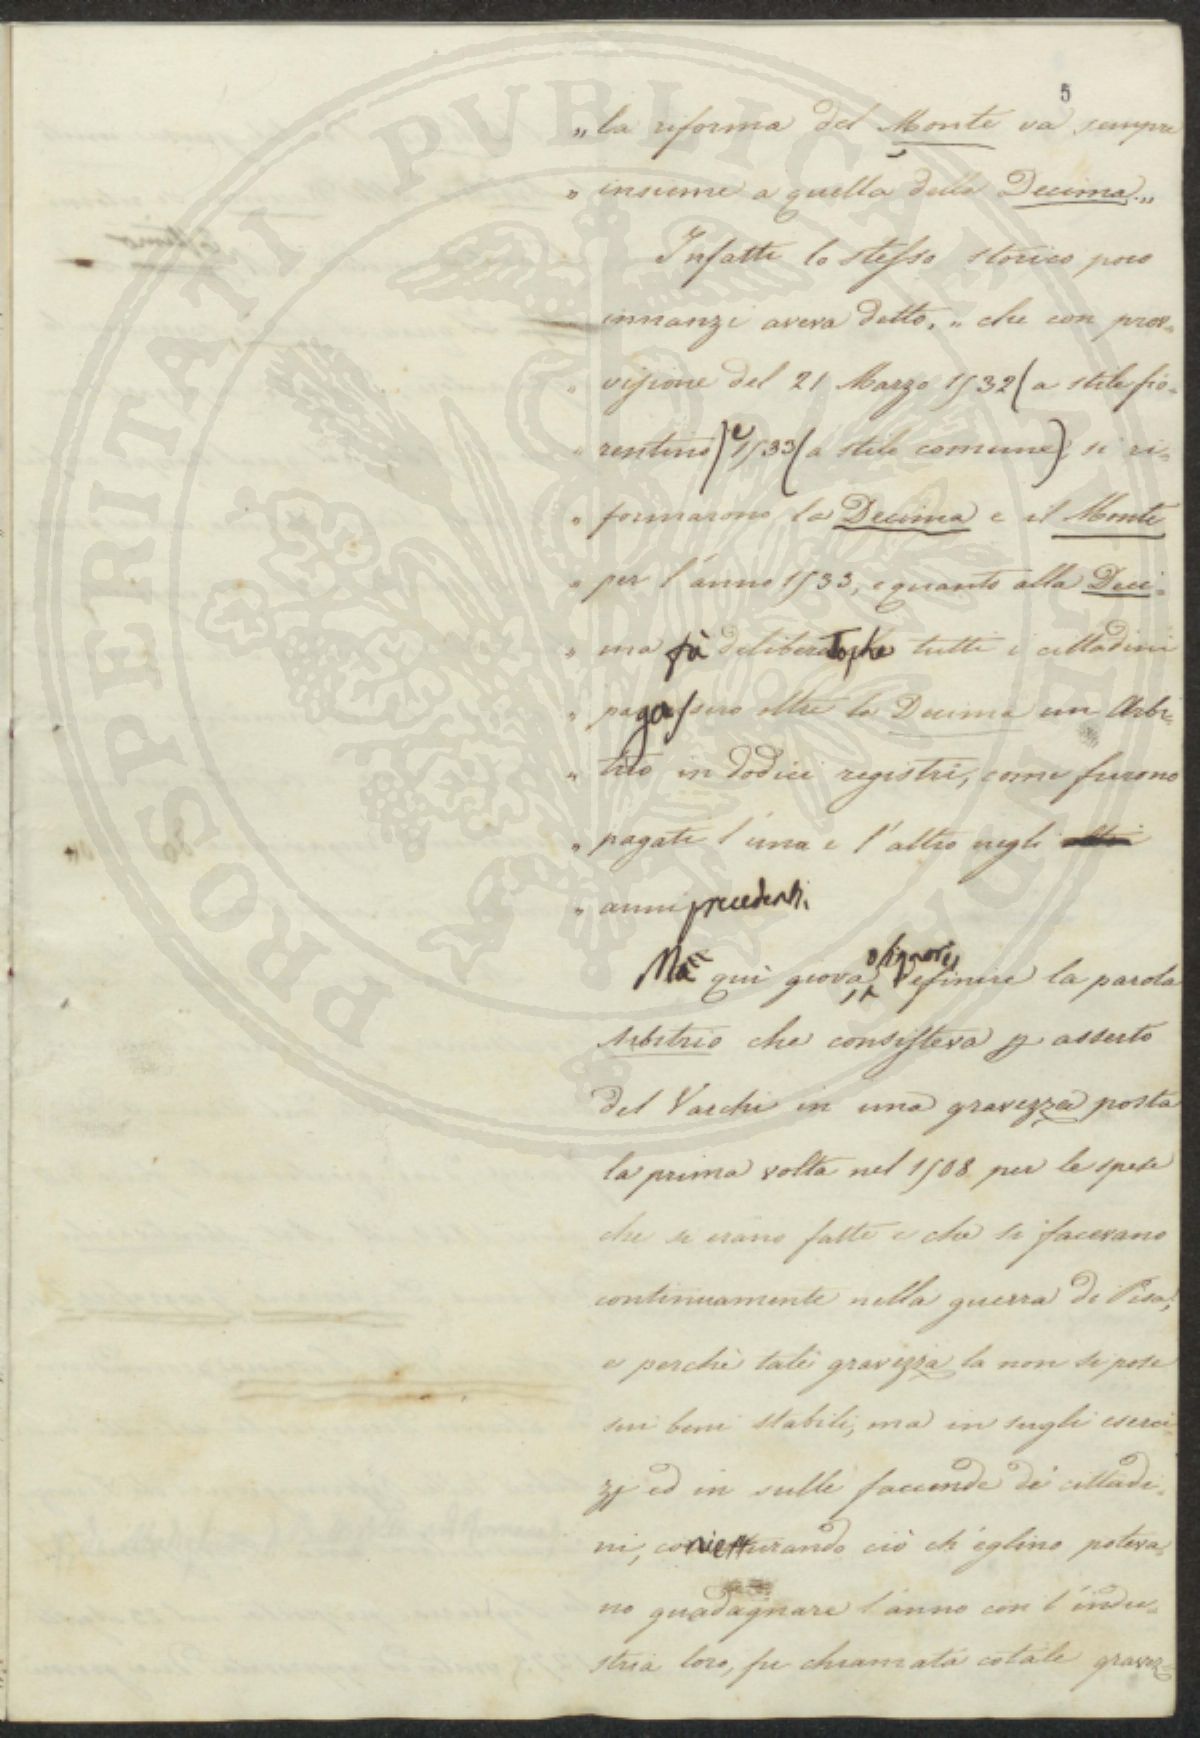 5
„la riforma del Monte va sempre
„ insieme a quella della Decima.„
Infatti lo stesso storico poco
innanzi aveva detto, „ che con prov-
„ visione del 21 Marzo 1532 (a stile fio-
„ rentino) e 1533 (a stile comune), si ri-
„ formarono la Decima e il Monte
„ per l'anno 1533, e quanto alla Deci-
„ ma fù deliberato che tutti i cittadini
„ pagassero oltre la Decima un Arbi-
„ trio in dodici registri, come furono
„ pagati l'una e l'altro negli altri
„ anni precedenti.
Ma qui giova, o signori, definire la parola
Arbitrio che consisteva p asserto
del Varchi in una gravezza posta
la prima volta nel 1508 per le spese
che si erano fatte e che si facevano
continuamente nella guerra di Pisa,
e perchè tale gravezza la non si pose
sui beni stabili, ma in sugli eserci-
zj ed in sulle faccende de' cittadi-
ni, conietturando ciò ch'eglino poteva-
no guadagnare l'anno con l'indu-
stria loro, fu chiamata cotale gravez-
PROSPERITATI PUBLICAE